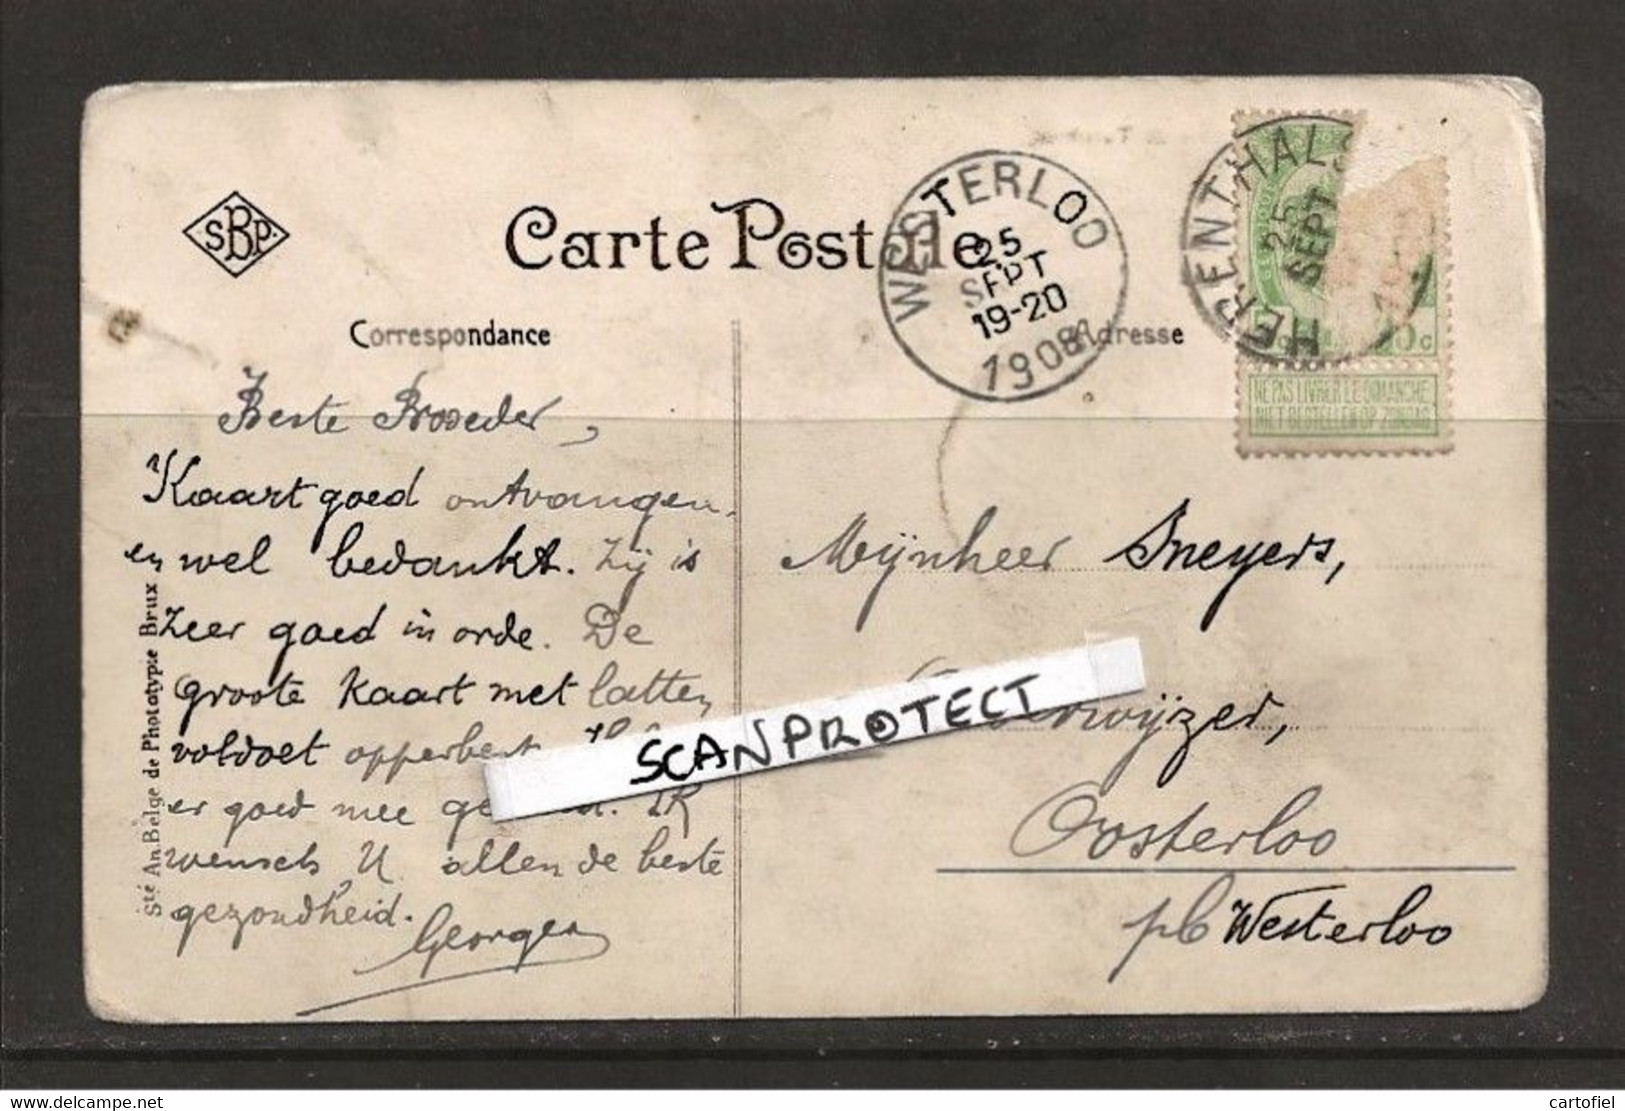 SBP.
Carte Postale
Correspondance
Adresse
WESTERLOO
25
SEPT
19-20
1908
HERENTHALS
25
SEPT
NE PAS LIVRER LE DIMANCHE
NIET BESTELLEN OP ZONDAG
Beste Broeder,
Kaart goed ontvangen
en wel bedankt. Zij is
zeer goed in orde. De
groote kaart met latten
voldoet opperbest
er goed mee IK
wensch U allen de beste
gezondheid.
Georges
Mijnheer Sneyers,
Oosterloo
p/c Westerloo
SCANPROTECT
Sté An. Belge de Phototypie Brux
cartofiel